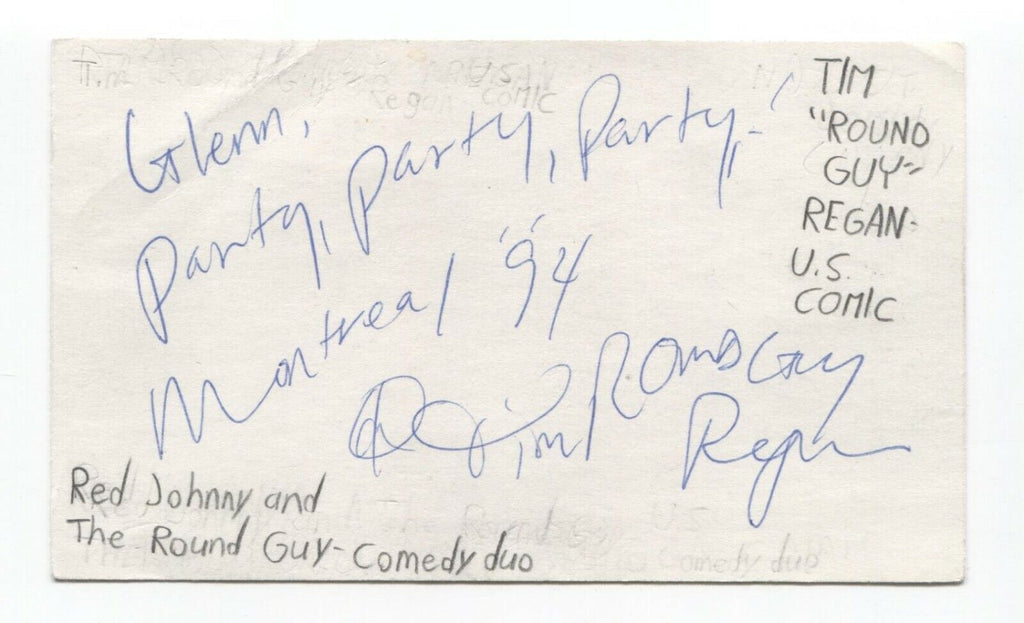 Glenn,
Party, Party, Party!
Montreal '94
Tim Round Guy
Regan
TIM
"ROUND
GUY"
REGAN-
U.S.
COMIC
Red Johnny and
The Round Guy - Comedy duo